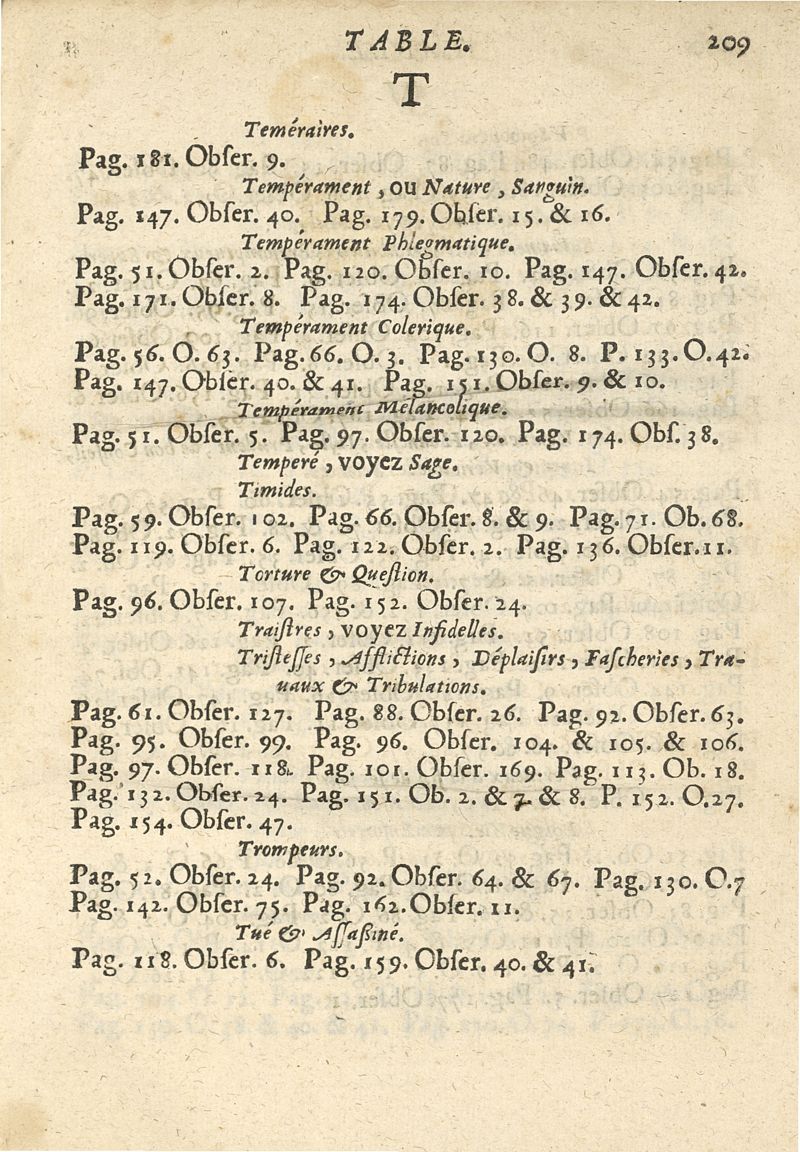 TABLE. 209
T
Teméraires.
Pag. 181. Obſer. 9.
Tempérament, ou Nature, Sanguin.
Pag. 147. Obſer. 40. Pag. 179. Obſer. 15. & 16.
Tempérament Phlegmatique.
Pag. 51. Obſer. 2. Pag. 120. Obſer. 10. Pag. 147. Obſer. 42.
Pag. 171. Obſer. 8. Pag. 174. Obſer. 38. & 39. & 42.
Tempérament Colerique.
Pag. 56. O. 63. Pag. 66. O. 3. Pag. 130. O. 8. P. 133. O. 42.
Pag. 147. Obſer. 40. & 41. Pag. 151. Obſer. 9. & 10.
Tempérament Mélancolique.
Pag. 51. Obſer. 5. Pag. 97. Obſer. 120. Pag. 174. Obſ. 38.
Temperé, voyez Sage.
Timides.
Pag. 59. Obſer. 102. Pag. 66. Obſer. 8. & 9. Pag. 71. Ob. 68.
Pag. 119. Obſer. 6. Pag. 122. Obſer. 2. Pag. 136. Obſer. 11.
Torture & Queſtion.
Pag. 96. Obſer. 107. Pag. 152. Obſer. 24.
Traiſtres, voyez Infidelles.
Triſteſſes, Afflictions, Déplaiſirs, Faſcheries, Tra-
uaux & Tribulations.
Pag. 61. Obſer. 127. Pag. 88. Obſer. 26. Pag. 92. Obſer. 63.
Pag. 95. Obſer. 99. Pag. 96. Obſer. 104. & 105. & 106.
Pag. 97. Obſer. 118. Pag. 101. Obſer. 169. Pag. 113. Ob. 18.
Pag. 132. Obſer. 24. Pag. 151. Ob. 2. & 7. & 8. P. 152. O. 27.
Pag. 154. Obſer. 47.
Trompeurs.
Pag. 52. Obſer. 24. Pag. 92. Obſer. 64. & 67. Pag. 130. O. 7
Pag. 142. Obſer. 75. Pag. 162. Obſer. 11.
Tué & Aſſaßiné.
Pag. 118. Obſer. 6. Pag. 159. Obſer. 40. & 41.